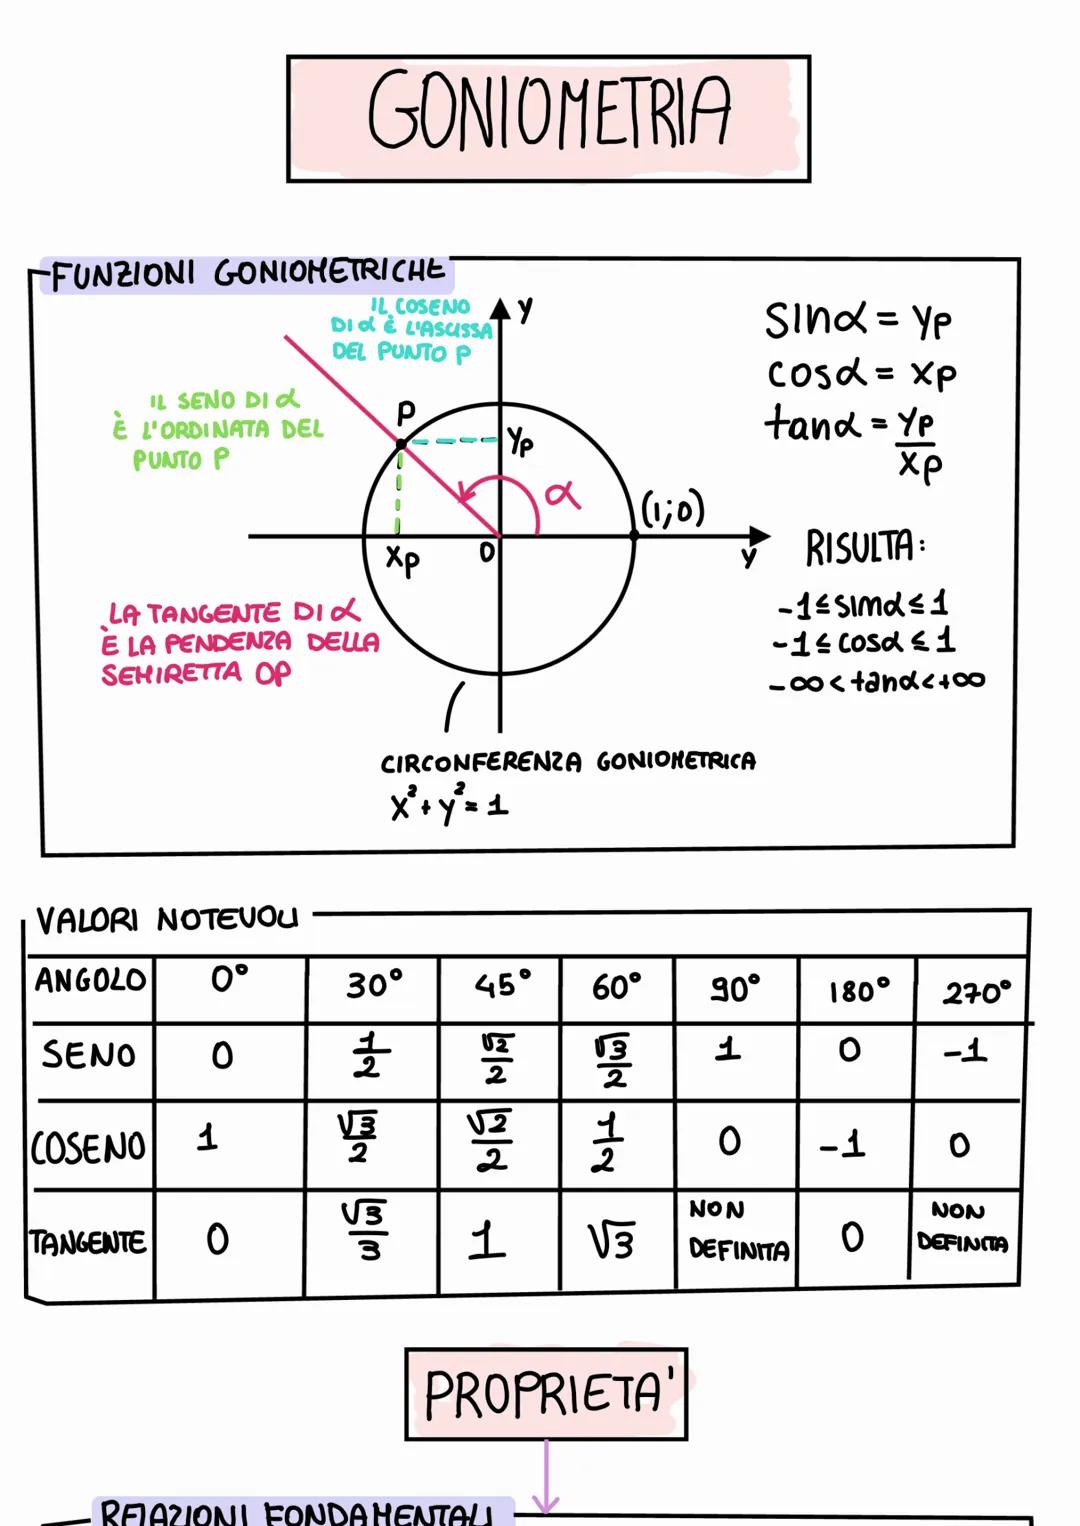 GONIOMETRIA
FUNZIONI GONIOMETRICHE
IL COSENO
DI α È L'ASCISSA
DEL PUNTO P
y
IL SENO DI α
È L'ORDINATA DEL
PUNTO P
P
yp
α
(1;0)
xp
O
y
LA TANGENTE DI α
È LA PENDENZA DELLA
SEMIRETTA OP
CIRCONFERENZA GONIOMETRICA
x²+y²=1
sinα = yp
cosα = xp
tanα = yp/xp
RISULTA:
-1≤simα≤1
-1≤cosα≤1
-∞<tanα<+∞
VALORI NOTEVOLI
ANGOLO 0° 30° 45° 60° 90° 180° 270°
SENO 0 1/2 √2/2 √3/2 1 0 -1
COSENO 1 √3/2 √2/2 1/2 0 -1 0
TANGENTE 0 √3/3 1 √3 NON DEFINITA 0 NON DEFINITA
PROPRIETA'
RELAZIONI FONDAMENTALI